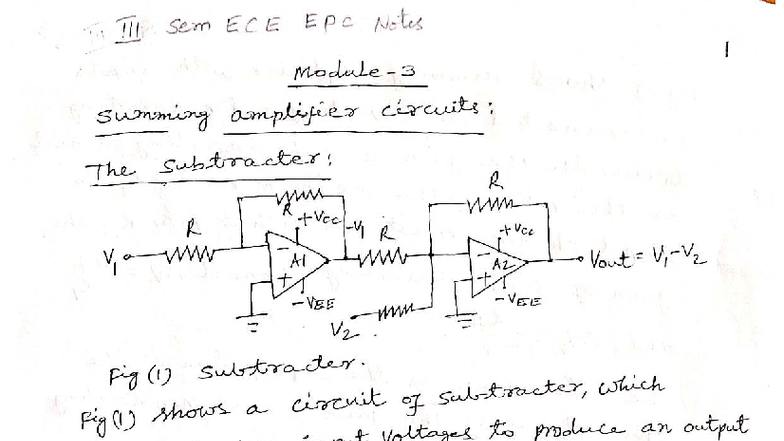 III Sem ECE EPC Notes
1
Module-3
Summing amplifier circuits:
The Subtracter:
R
R
+Vcc
-V1
R
V1
A1
-
+
-VEE
R
+Vcc
A2
-
+
-VEE
Vout = V1-V2
V2
Fig (1) Subtracter.
Fig (1) shows a circuit of subtracter, which
voltages to produce an output